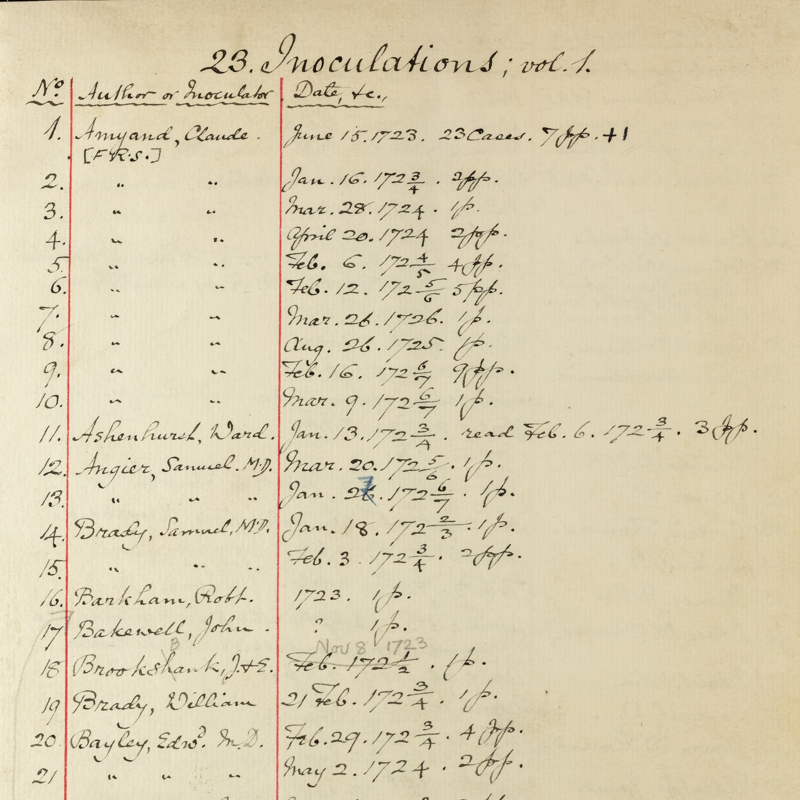 23. Inoculations; vol. 1.
No. Author or Inoculator Date, &c.,
1. Amyand, Claude. June 15. 1723. 23 Cases. 7pp. +1
[F.R.S.]
2. " " Jan. 16. 172 3/4. 2pp.
3. " " Mar. 28. 1724. 1p.
4. " " April 20. 1724 2pp.
5. " " Feb. 6. 172 4/5 4pp.
6. " " Feb. 12. 172 5/6 5pp.
7. " " Mar. 26. 1726. 1p.
8. " " Aug. 26. 1725. 1p.
9. " " Feb. 16. 172 6/7 9pp.
10. " " Mar. 9. 172 6/7 1p.
11. Ashenhurst, Ward. Jan. 13. 172 3/4. read Feb. 6. 172 3/4. 3pp.
12. Angier, Samuel. M.D. Mar. 20. 172 5/6. 1p.
13. " " " Jan. 27. 172 6/7. 1p.
14. Brady, Samuel, M.D. Jan. 18. 172 2/3. 1p.
15. " " " Feb. 3 172 3/4. 2pp.
16. Barkham, Robt. 1723. 1p.
17 Bakewell, John. ? 1p.
B Nov 8 1723
18 Brookshank, J. & E. Feb. 172 1/2. 1p.
19 Brady, William 21 Feb. 172 3/4. 1p.
20 Bayley, Edwd. M.D. Feb. 29. 172 3/4. 4pp.
21 " " " May 2. 1724. 2pp.